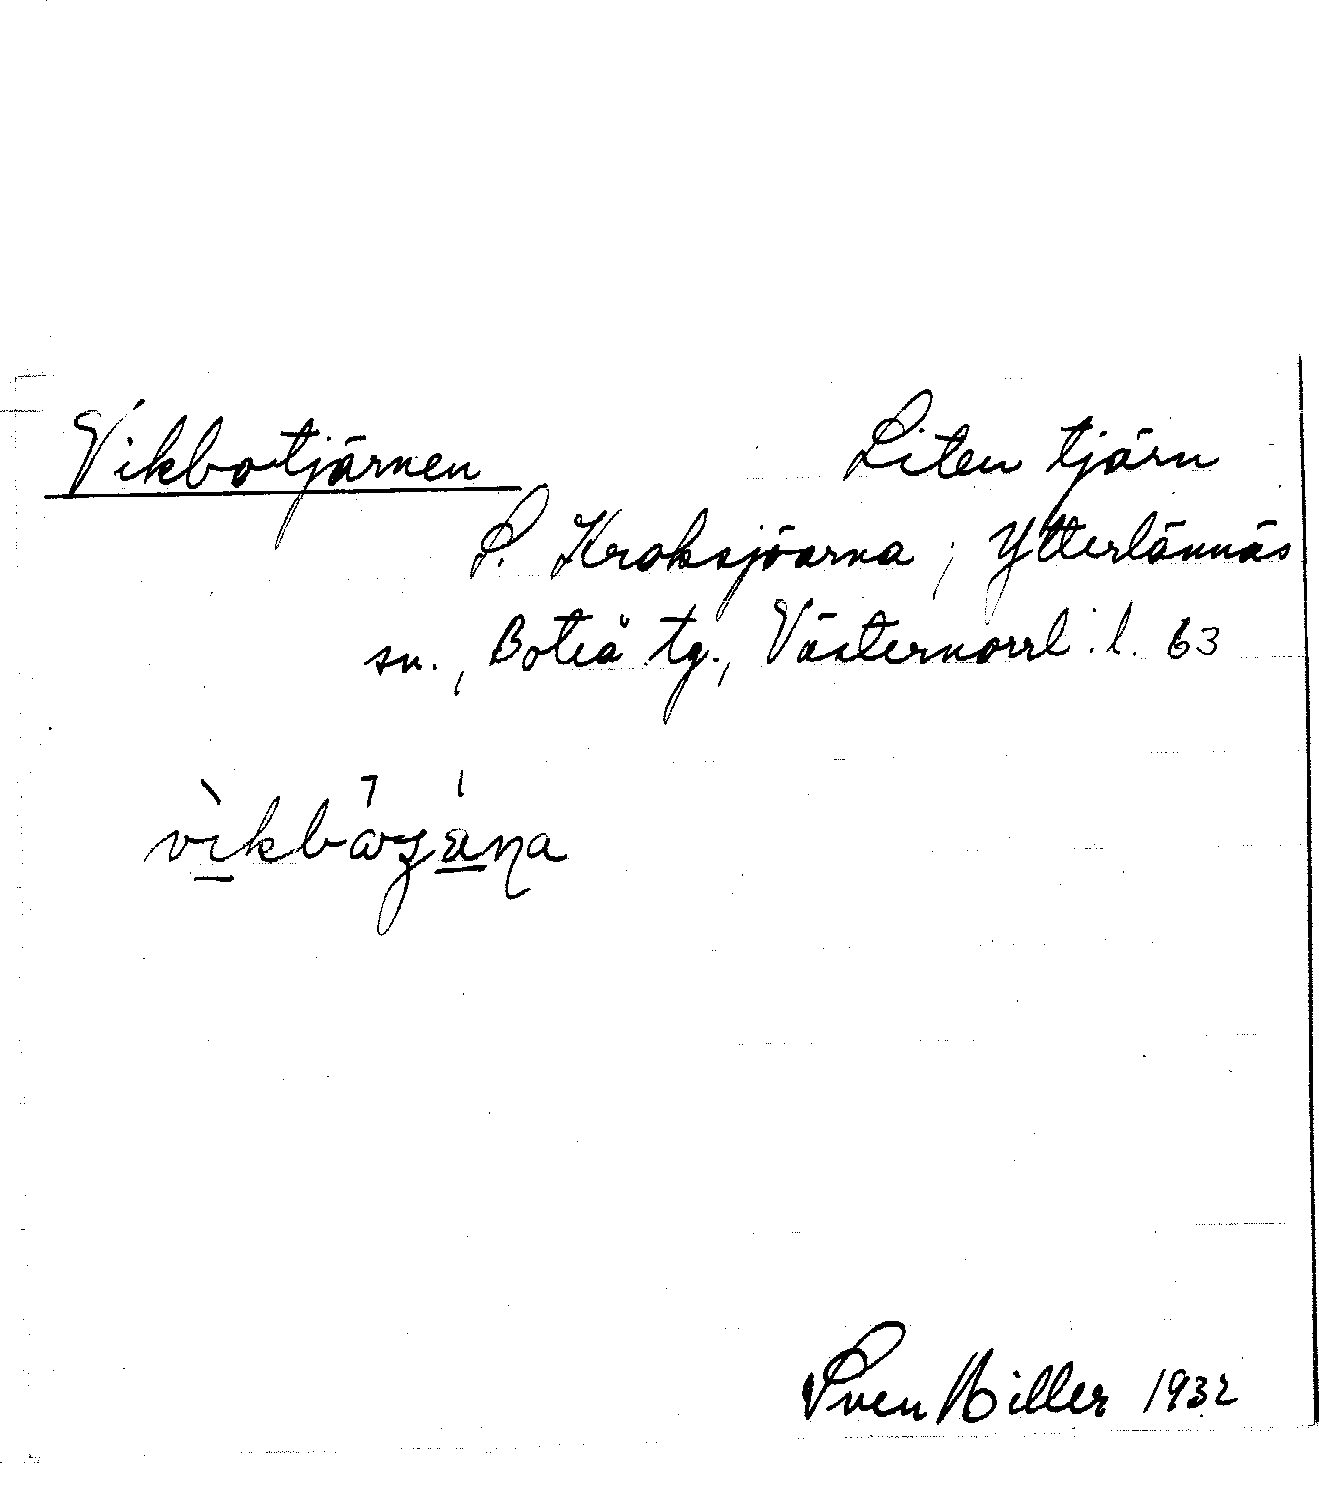 Vikbotjärnen Liten tjärn
S. Kroksjöarna, Ytterlännäs
sn., Boteå tg., Västernorrl:l. 63
Sven Hiller 1932